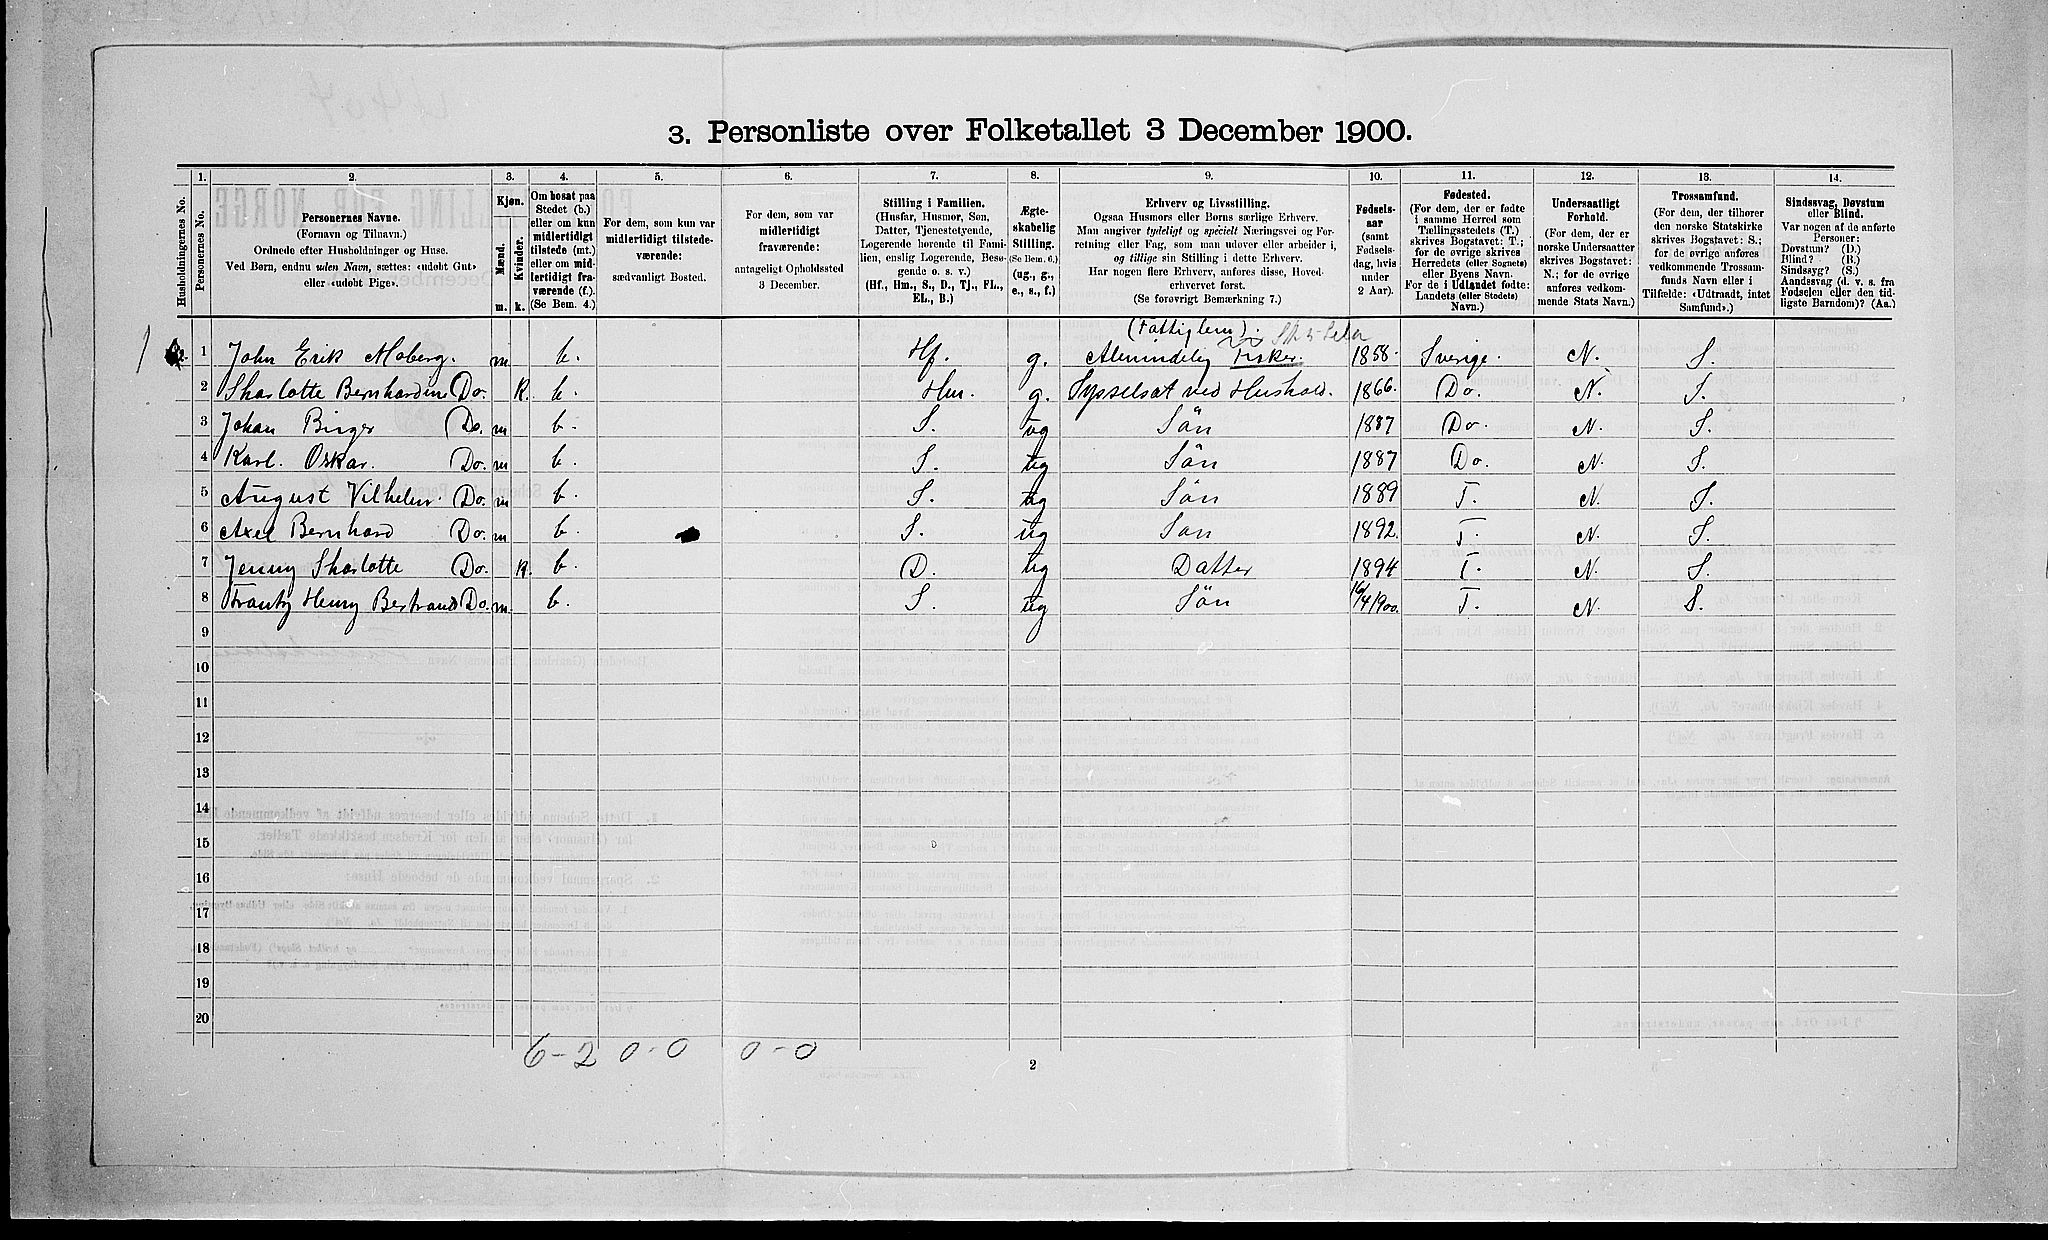 3. Personliste over Folketallet 3 December 1900.
1. 2. 3. 4. 5. 6. 7. 8. 9. 10. 11. 12. 13. 14.
Husholdningernes No.
Personernes No.
Personernes Navne.
(Fornavn og Tilnavn.)
Ordnede efter Husholdninger og Huse.
Ved Børn, endnu uden Navn, sættes: «udøbt Gut»
eller «udøbt Pige».
Kjøn.
Mænd.
Kvinder.
m. k.
Om bosat paa
Stedet (b.)
eller om kun
midlertidigt
tilstede (mt.)
eller om mid-
lertidigt fra-
værende (f.).
(Se Bem. 4.)
For dem, som kun var
midlertidigt tilstede-
værende:
sædvanligt Bosted.
For dem, som var
midlertidigt
fraværende:
antageligt Opholdssted
3 December.
Stilling i Familien.
(Husfar, Husmor, Søn,
Datter, Tjenestetyende,
Logerende hørende til Fami-
lien, enslig Logerende, Besø-
gende o. s. v.)
(Hf., Hm., S., D., Tj., FL.,
EL., B.)
Ægte-
skabelig
Stilling.
(Se Bem. 6.)
(ug., g.,
e., s., f.)
Erhverv og Livsstilling.
Ogsaa Husmors eller Børns særlige Erhverv.
Man angiver tydeligt og specielt Næringsvei og For-
retning eller Fag, som man udøver eller arbeider i,
og tillige sin Stilling i dette Erhverv.
Har nogen flere Erhverv, anføres disse, Hoved-
erhvervet først.
(Se forøvrigt Bemærkning 7.)
Fødsels-
aar
(samt
Fødsels-
dag, hvis
under
2 Aar).
Fødested.
(For dem, der er fødte
i samme Herred som
Tællingsstedets (T.)
skrives Bogstavet: T.;
for de øvrige skrives
Herredets (eller Sognets)
eller Byens Navn.
For de i Udlandet fødte:
Landets (eller Stedets)
Navn.)
Undersaatligt
Forhold.
(For dem, der er
norske Undersaatter
skrives Bogstavet:
N.; for de øvrige
anføres vedkom-
mende Stats Navn.)
Trossamfund.
(For dem, der tilhører
den norske Statskirke
skrives Bogstavet: S.;
for de øvrige anføres
vedkommende Trossam-
funds Navn eller i
Tilfælde: «Udtraadt, intet
Samfund».)
Sindssvag, Døvstum
eller Blind.
Var nogen af de anførte
Personer:
Døvstum? (D.)
Blind? (B.)
Sindssyg? (S.)
Aandssvag (d. v. s. fra
Fødselen eller den tid-
ligste Barndom)? (Aa.)
(Fattiglem).
1 1 John Erik Moberg. m b. Hf. g. Almindelig Fisker. 1858. Sverige. N. S.
2 Sharlotte Bernhardine Do. K. b. Hm. g. Sysselsat ved Hushold. 1866. Do. N. S.
3 Johan Birger Do. m b. S. ug Sön 1887 Do. N. S.
4 Karl. Oskar. Do. m b. S. ug Sön 1887 Do. N. S.
5 August Vilhelm. Do. m b. S. ug Sön 1889 T. N. S.
6 Axel Bernhard Do. m b. S. ug Sön 1892. T. N. S.
7 Jenny Sharlotte Do. K. b. D. ug Datter 1894 T. N. S.
8 Frantz Henry Bertrand Do. m. b. S. ug Sön 16/4 1900. T. N. S.
9
10
11
12
13
14
15
16
17
18
19
20
6-2 0-0 0-0
2